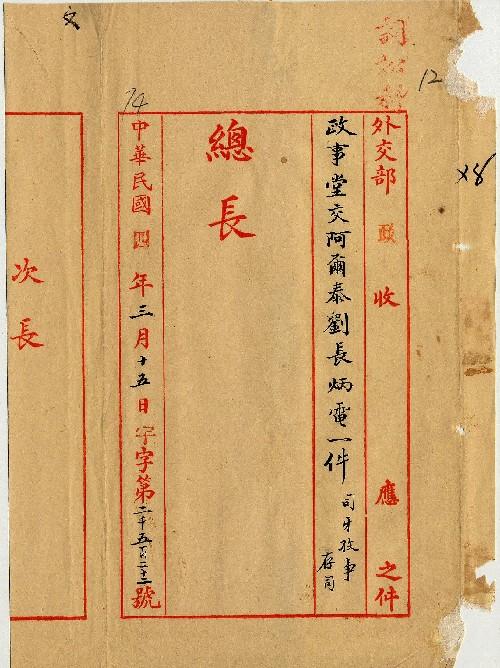 12
外交部 政 收 應 之件
政事堂交阿爾泰劉長炳電一件
存司
總長
中華民國四年三月十五日 字第二千五百二十二號
74
次長
文